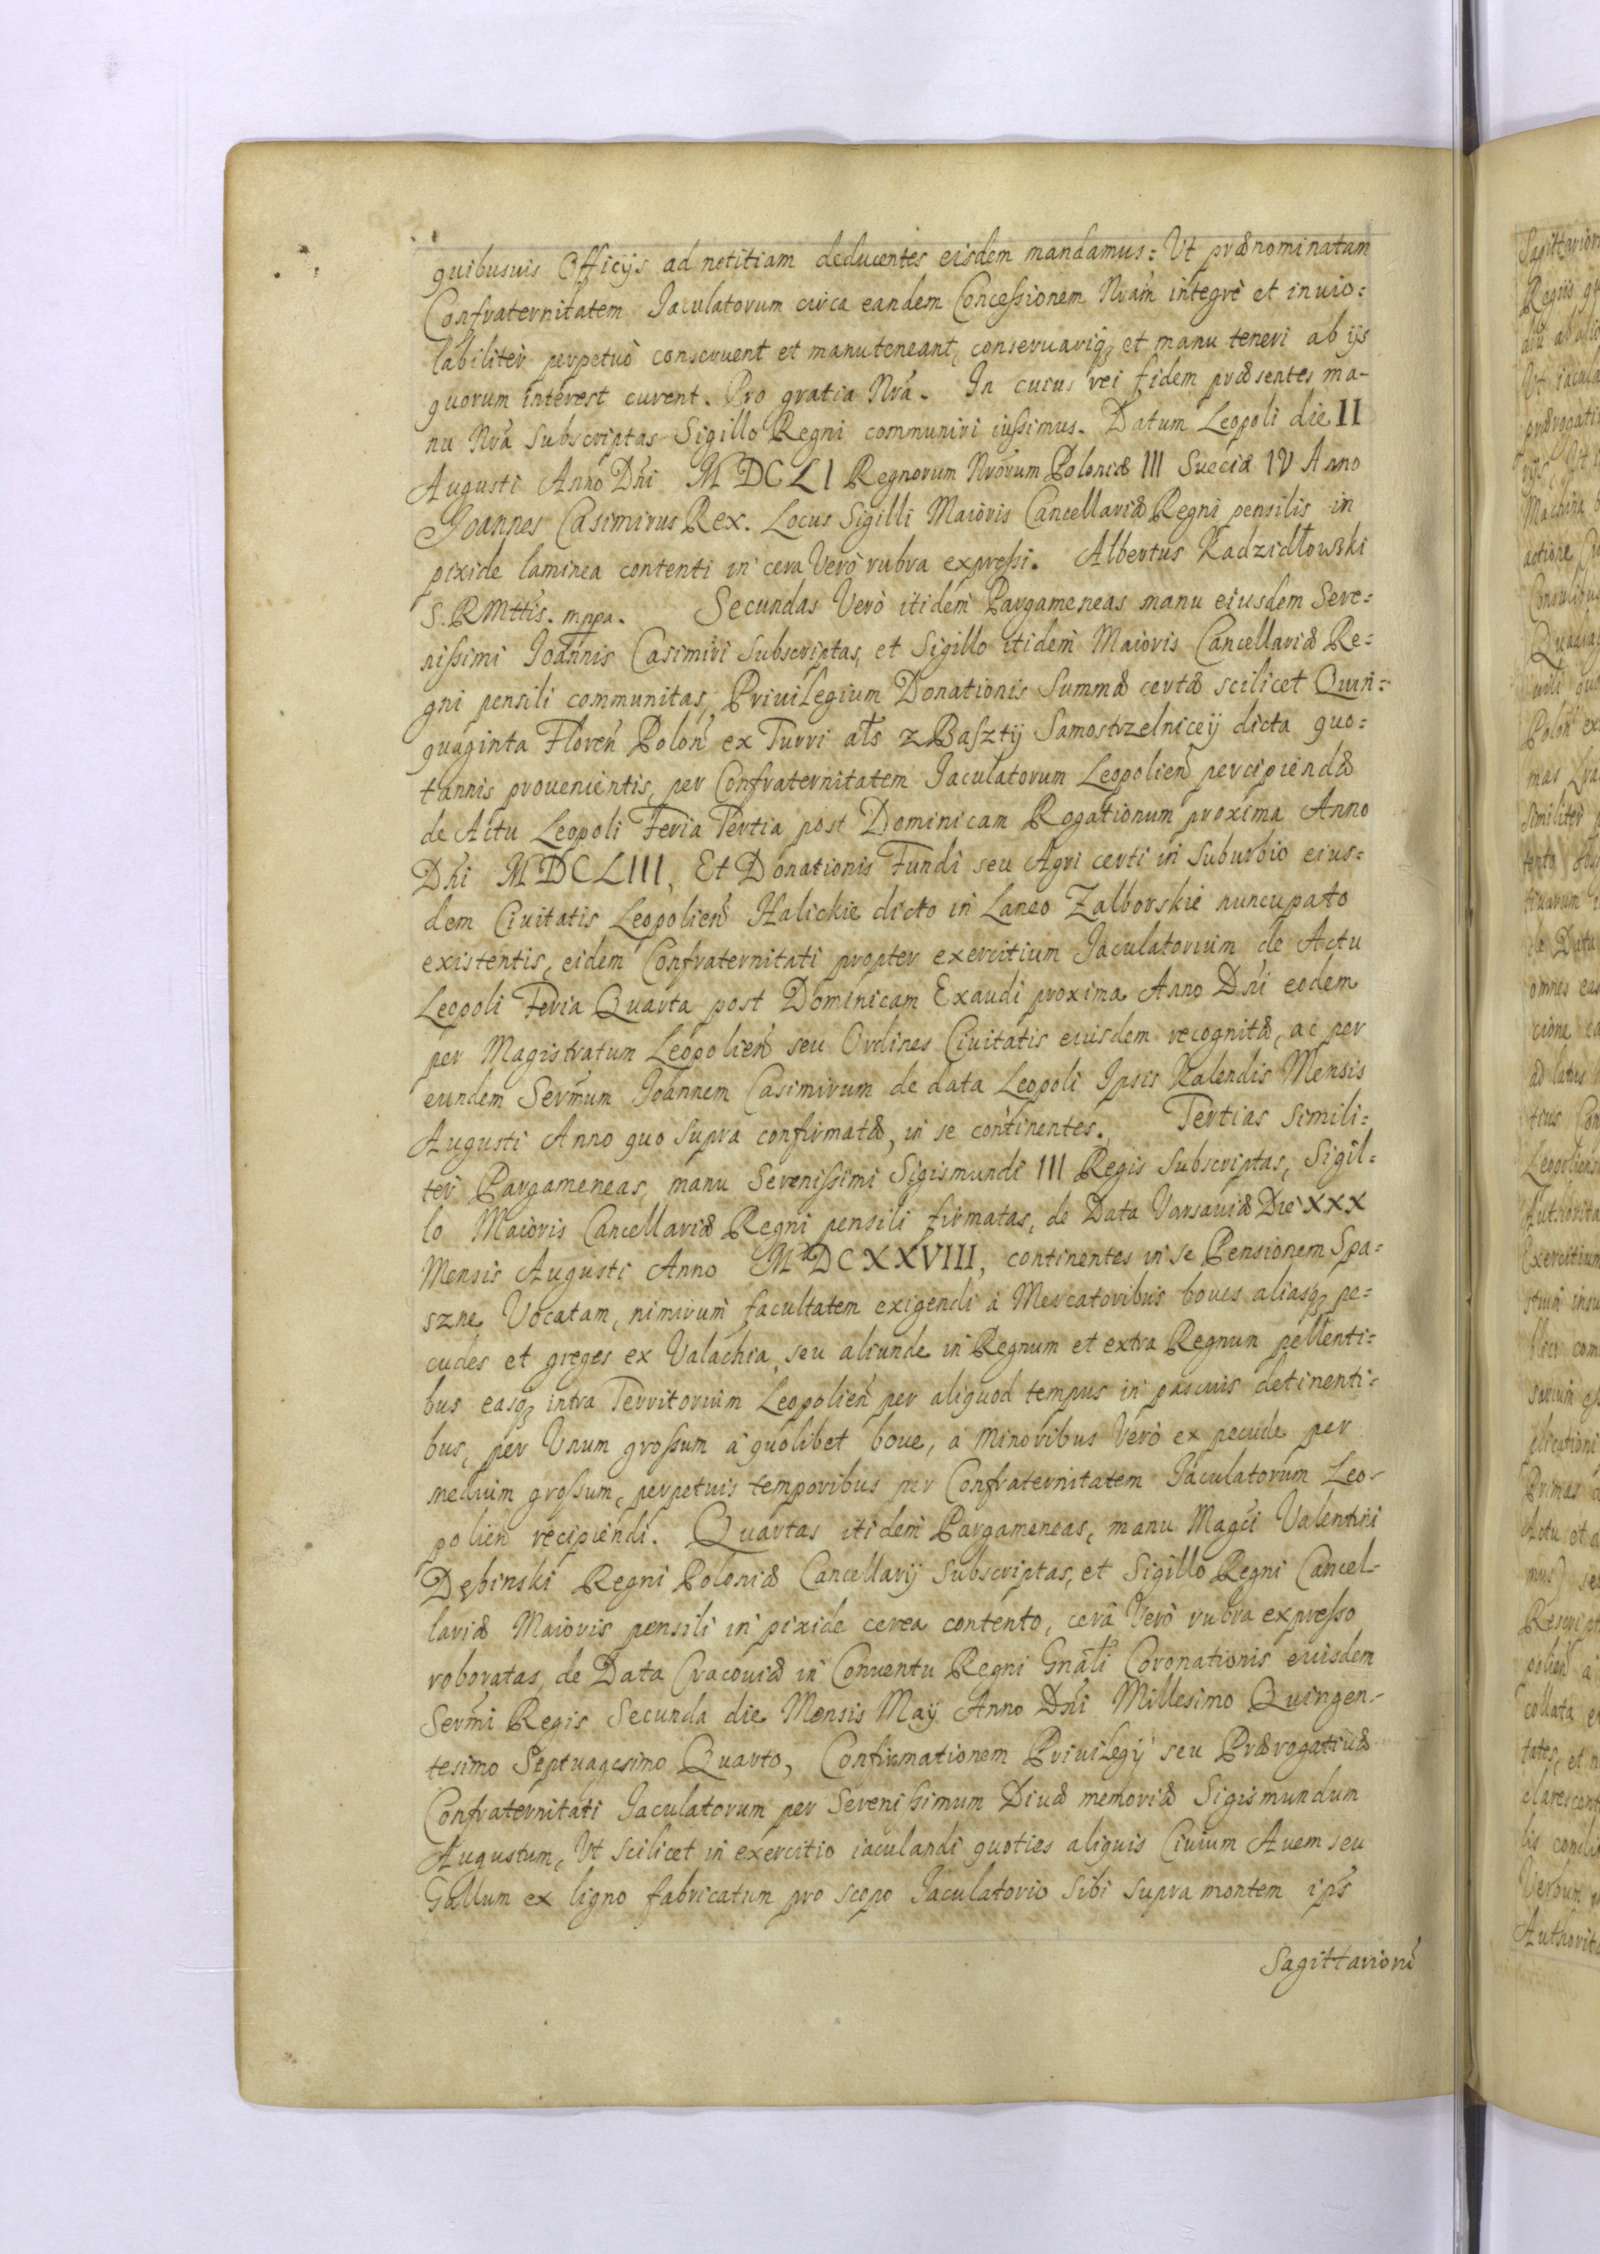 quibusuis Officijs ad notitiam deducentes eisdem mandamus: Vt prænominatam
Confraternitatem Iaculatorum circa eandem Concessionem Nrãm integrè et inuio:
labiliter perpetuò conseruent et manuteneant, conseruariq; et manu teneri ab ijs
quorum interest curent. Pro gratia Nrã. In cuius rei fidem præsentes ma-
nu Nrã subscriptas Sigillo Regni communiri iussimus. Datum Leopoli die II
Augusti Anno Dñi MDCLI Regnorum Nrõrum Poloniæ III Sueciæ IV Anno
Ioannes Casimirus Rex. Locus Sigilli Maioris Cancellariæ Regni pensilis in
pixide laminea contenti in cera Verò rubra expressi. Albertus Kadzidłowski
S. RMttis. mppa. Secundas Verò itidem Pargameneas manu eiusdem Sere:
nissimi Ioannis Casimiri subscriptas, et Sigillo itidem Maioris Cancellariæ Re:
gni pensili communitas, Priuilegium Donationis Summæ certæ scilicet Quin:
quaginta Floreñ Poloñ ex Turri ałs z Basztij Samostrzelniceij dicta quo:
tannis prouenientis, per Confraternitatem Iaculatorum Leopolieñ percipiendæ
de Actu Leopoli Feria Tertia post Dominicam Rogationum proxima Anno
Dñi MDCLIII, Et Donationis Fundi seu Agri certi in Suburbio eius:
dem Ciuitatis Leopolieñ Halickie dicto in Laneo Zalborskie nuncupato
existentis, eidem Confraternitati propter exercitium Iaculatorium de Actu
Leopoli Feria Quarta post Dominicam Exaudi proxima Anno Dñi eodem
per Magistratum Leopolieñ seu Ordines Ciuitatis eiusdem recognitæ, ac per
eundem Sermum Ioannem Casimirum de data Leopoli Ipsis Kalendis Mensis
Augusti Anno quo supra confirmatæ, in se continentes. Tertias simili:
ter Pargameneas, manu Serenissimi Sigismundi III Regis Subscriptas, Sigil:
lo Maioris Cancellariæ Regni pensili firmatas, de Data Varsauiæ Die XXX
Mensis Augusti Anno MDCXXVIII, continentes in se Pensionem Spa:
szne Vocatam, nimirum facultatem exigendi à Mercatoribus boues aliasq; pe:
cudes et greges ex Valachia, seu aliunde in Regnum et extra Regnum pellenti:
bus easq; intra Territorium Leopolieñ per aliquod tempus in pascuis detinenti:
bus, per Vnum grossum à quolibet boue, à minoribus Verò ex pecude per
medium grossum, perpetuis temporibus per Confraternitatem Iaculatorum Leo-
polieñ recipiendi. Quartas itidem Pargameneas, manu Magci Valentini
Dębinski Regni Poloniæ Cancellarij subscriptas, et Sigillo Regni Cancel-
lariæ Maioris pensili in pixide cerea contento, cerâ Verò rubra expresso
roboratas, de Data Cracouiæ in Conuentu Regni Gnãli Coronationis eiusdem
Sermi Regis Secunda die Mensis Maij Anno Dñi Millesimo Quingen-
tesimo Septuagesimo Quarto, Confirmationem Priuilegij seu Prærogatiuæ
Confraternitati Iaculatorum per Serenissimum Diuæ memoriæ Sigismundum
Augustum, Vt scilicet in exercitio iaculandi quoties aliquis Ciuium Auem seu
Gallum ex ligno fabricatum pro scopo Iaculatorio sibi supra montem ips
Sagittarioru